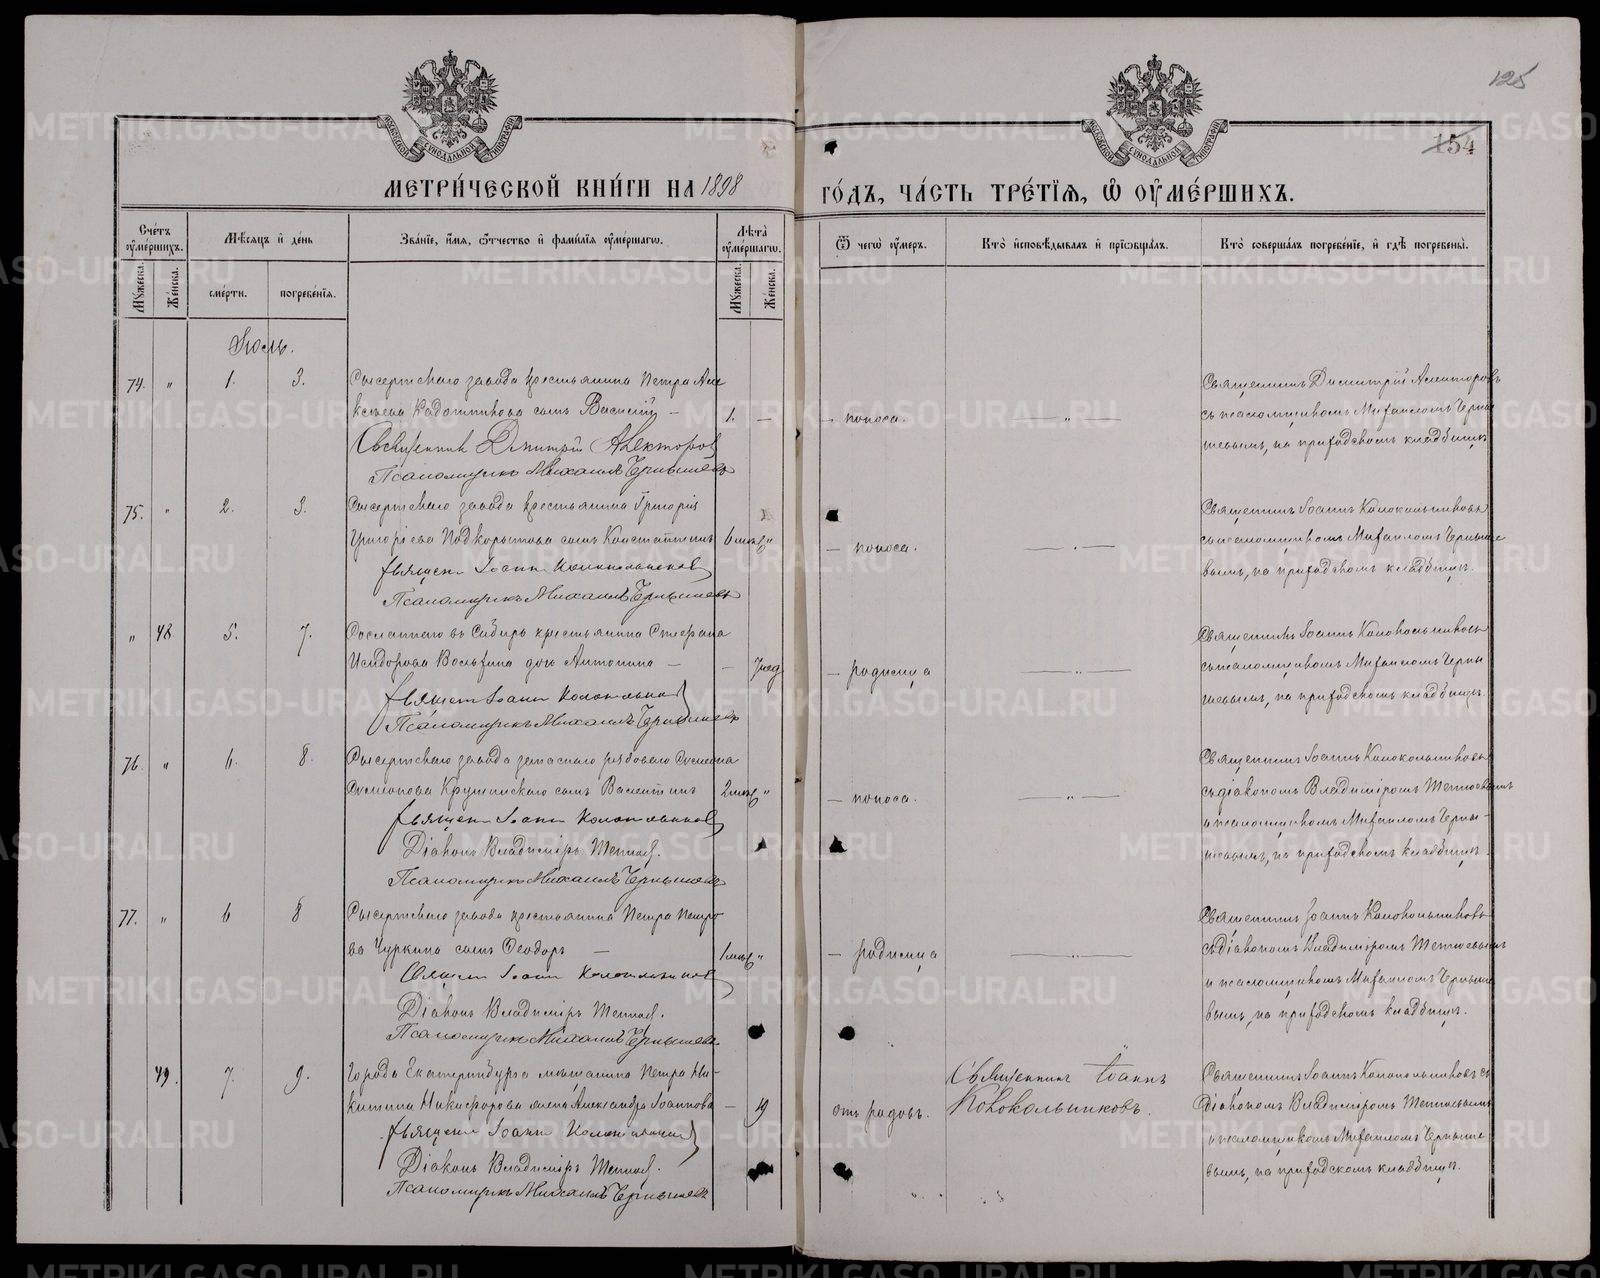 125
154
МЕТРИ́ЧЕСКОЙ КНИ́ГИ НА 1898
ГО́ДЪ, ЧА́СТЬ ТРЕ́ТЇѦ, Ѡ҆ ОУ҆МЕ́РШИХЪ.
Сче́тъ оу҆ме́ршихъ.
Мѣ́сѧцъ и҆ де́нь
Зва́нїе, и҆́мѧ, ѻ҆́тчество и҆ фамı́лїѧ оу҆ме́ршагѡ.
Лѣ́та оу҆ме́ршагѡ.
Ѿ чегѡ̀ оу҆́меръ.
Кто̀ и҆сповѣ́дывалъ и҆ прїѡбща́лъ.
Кто̀ соверша́лъ погребе́нїе, и҆ гдѣ̀ погребены̀.
Мꙋ́жеска.
Же́нска.
сме́рти.
погребе́нїѧ.
Мꙋ́жеска.
Же́нска.
Іюль.
74. " 1. 3. Сысертскаго завода крестьянина Петра Але
ксѣева сынъ Василій – 1. –
Священник Дмитрій Алекторов
Псаломщикъ Михаилъ Чернышевъ
– поноса. — " —
Священникъ Димитрій Алекторовъ
съ псаломщикомъ Михаиломъ Черны
шевымъ, на приходскомъ кладбищѣ
75. " 2. 3. Сысертскаго завода крестьянина Григорія
Григорьева Подкорытова сынъ Константинъ 6 мѣс "
Священ Іоанн Колокольников
Псаломщикъ Михаилъ Чернышевъ
– поноса. — " —
Священникъ Іоаннъ Колокольниковъ
съ псаломщикомъ Михаиломъ Черныше
вымъ, на приходскомъ кладбищѣ.
" 48 5. 7. Сосланнаго въ Сибирь крестьянина Стефана
Исидорова дочь Антонина – – 7 нед
Священ Іоанн Колокольников
Псаломщикъ Михаилъ Чернышевъ
– родимца — " —
Священникъ Іоаннъ Колокольниковъ
съ псаломщикомъ Михаиломъ Черны
шевымъ, на приходскомъ кладбищѣ.
76. " 6. 8. Сысертскаго завода запаснаго рядоваго Сумеона
Сумеонова Крушинскаго сынъ Валентинъ 2 мѣс "
Священ Іоанн Колокольников
Діаконъ Владиміръ
Псаломщикъ Михаилъ Чернышевъ
– поноса. — " —
Священникъ Іоаннъ Колокольниковъ
съ діакономъ Владиміромъ
и псаломщикомъ Михаиломъ Черны-
шевымъ, на приходскомъ кладбищѣ.
77. " 6 8 Сысертскаго завода крестьянина Петра Петро
ва Чуркина сынъ Ѳеодоръ – 1 мѣс "
Священ Іоанн Колокольников
Діаконъ Владиміръ
Псаломщикъ Михаилъ Чернышевъ
– родимца — " —
Священникъ Іоаннъ Колокольниковъ
съ діакономъ Владиміромъ
и псаломщикомъ Михаиломъ Черныше
вымъ, на приходскомъ кладбищѣ.
49. 7. 9. Города Екатеринбурга мѣщанина Петра Ни-
китина Никифорова жена Александра Іоаннова – 19
Священ Іоанн Колокольников
Діаконъ Владиміръ
Псаломщикъ Михаилъ Чернышевъ
отъ родовъ.
Священникъ Іоаннъ
Колокольниковъ.
Священникъ Іоаннъ Колокольниковъ съ
діакономъ Владиміромъ
и псаломщикомъ Михаиломъ Черныше
вымъ, на приходскомъ кладбищѣ.
METRIKI.GASO-URAL.RU